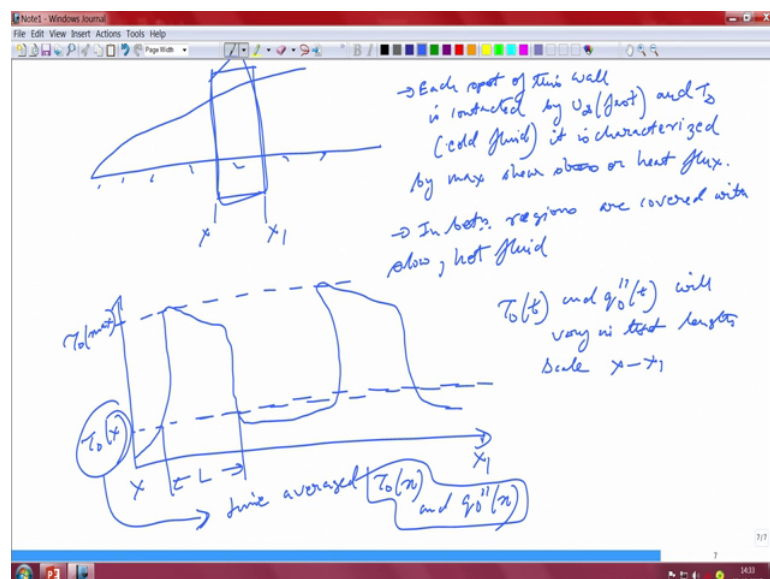 Note1 - Windows Journal
File Edit View Insert Actions Tools Help
Page Width
→ Each spot of this wall
is contacted by U∞ (fast) and T∞
(cold fluid) it is characterized
by max shear stress or heat flux.
→ In betn. regions are covered with
slow, hot fluid
x x1
τ0(max)
τ0(t) and q0''(t) will
vary in that length
scale x-x1
τ0(x)
x ± L x1
time averaged τ0(x)
and q0''(x)
7/7
7
14:33